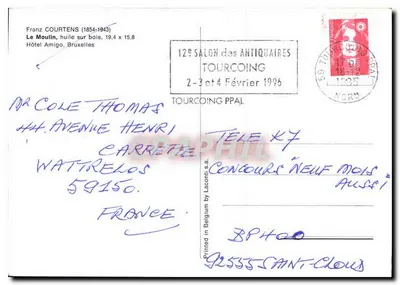 Franz COURTENS (1854-1943)
Le Moulin, huile sur bois, 19,4 x 15,8
Hôtel Amigo, Bruxelles
12e SALON des ANTIQUAIRES
TOURCOING
2-3 et 4 Février 1996
TOURCOING PPAL
59 TOURCOING PPAL
1995
NORD
Mr COLE THOMAS
44 AVENUE HENRI
CARRETTE
WATTRELOS
59150.
FRANCE.
Printed in Belgium by Laconti s.a.
TELE K7
CONCOURS "NEUF MOIS
AUSSI"
BP400
92555 SAINT-CLOUD